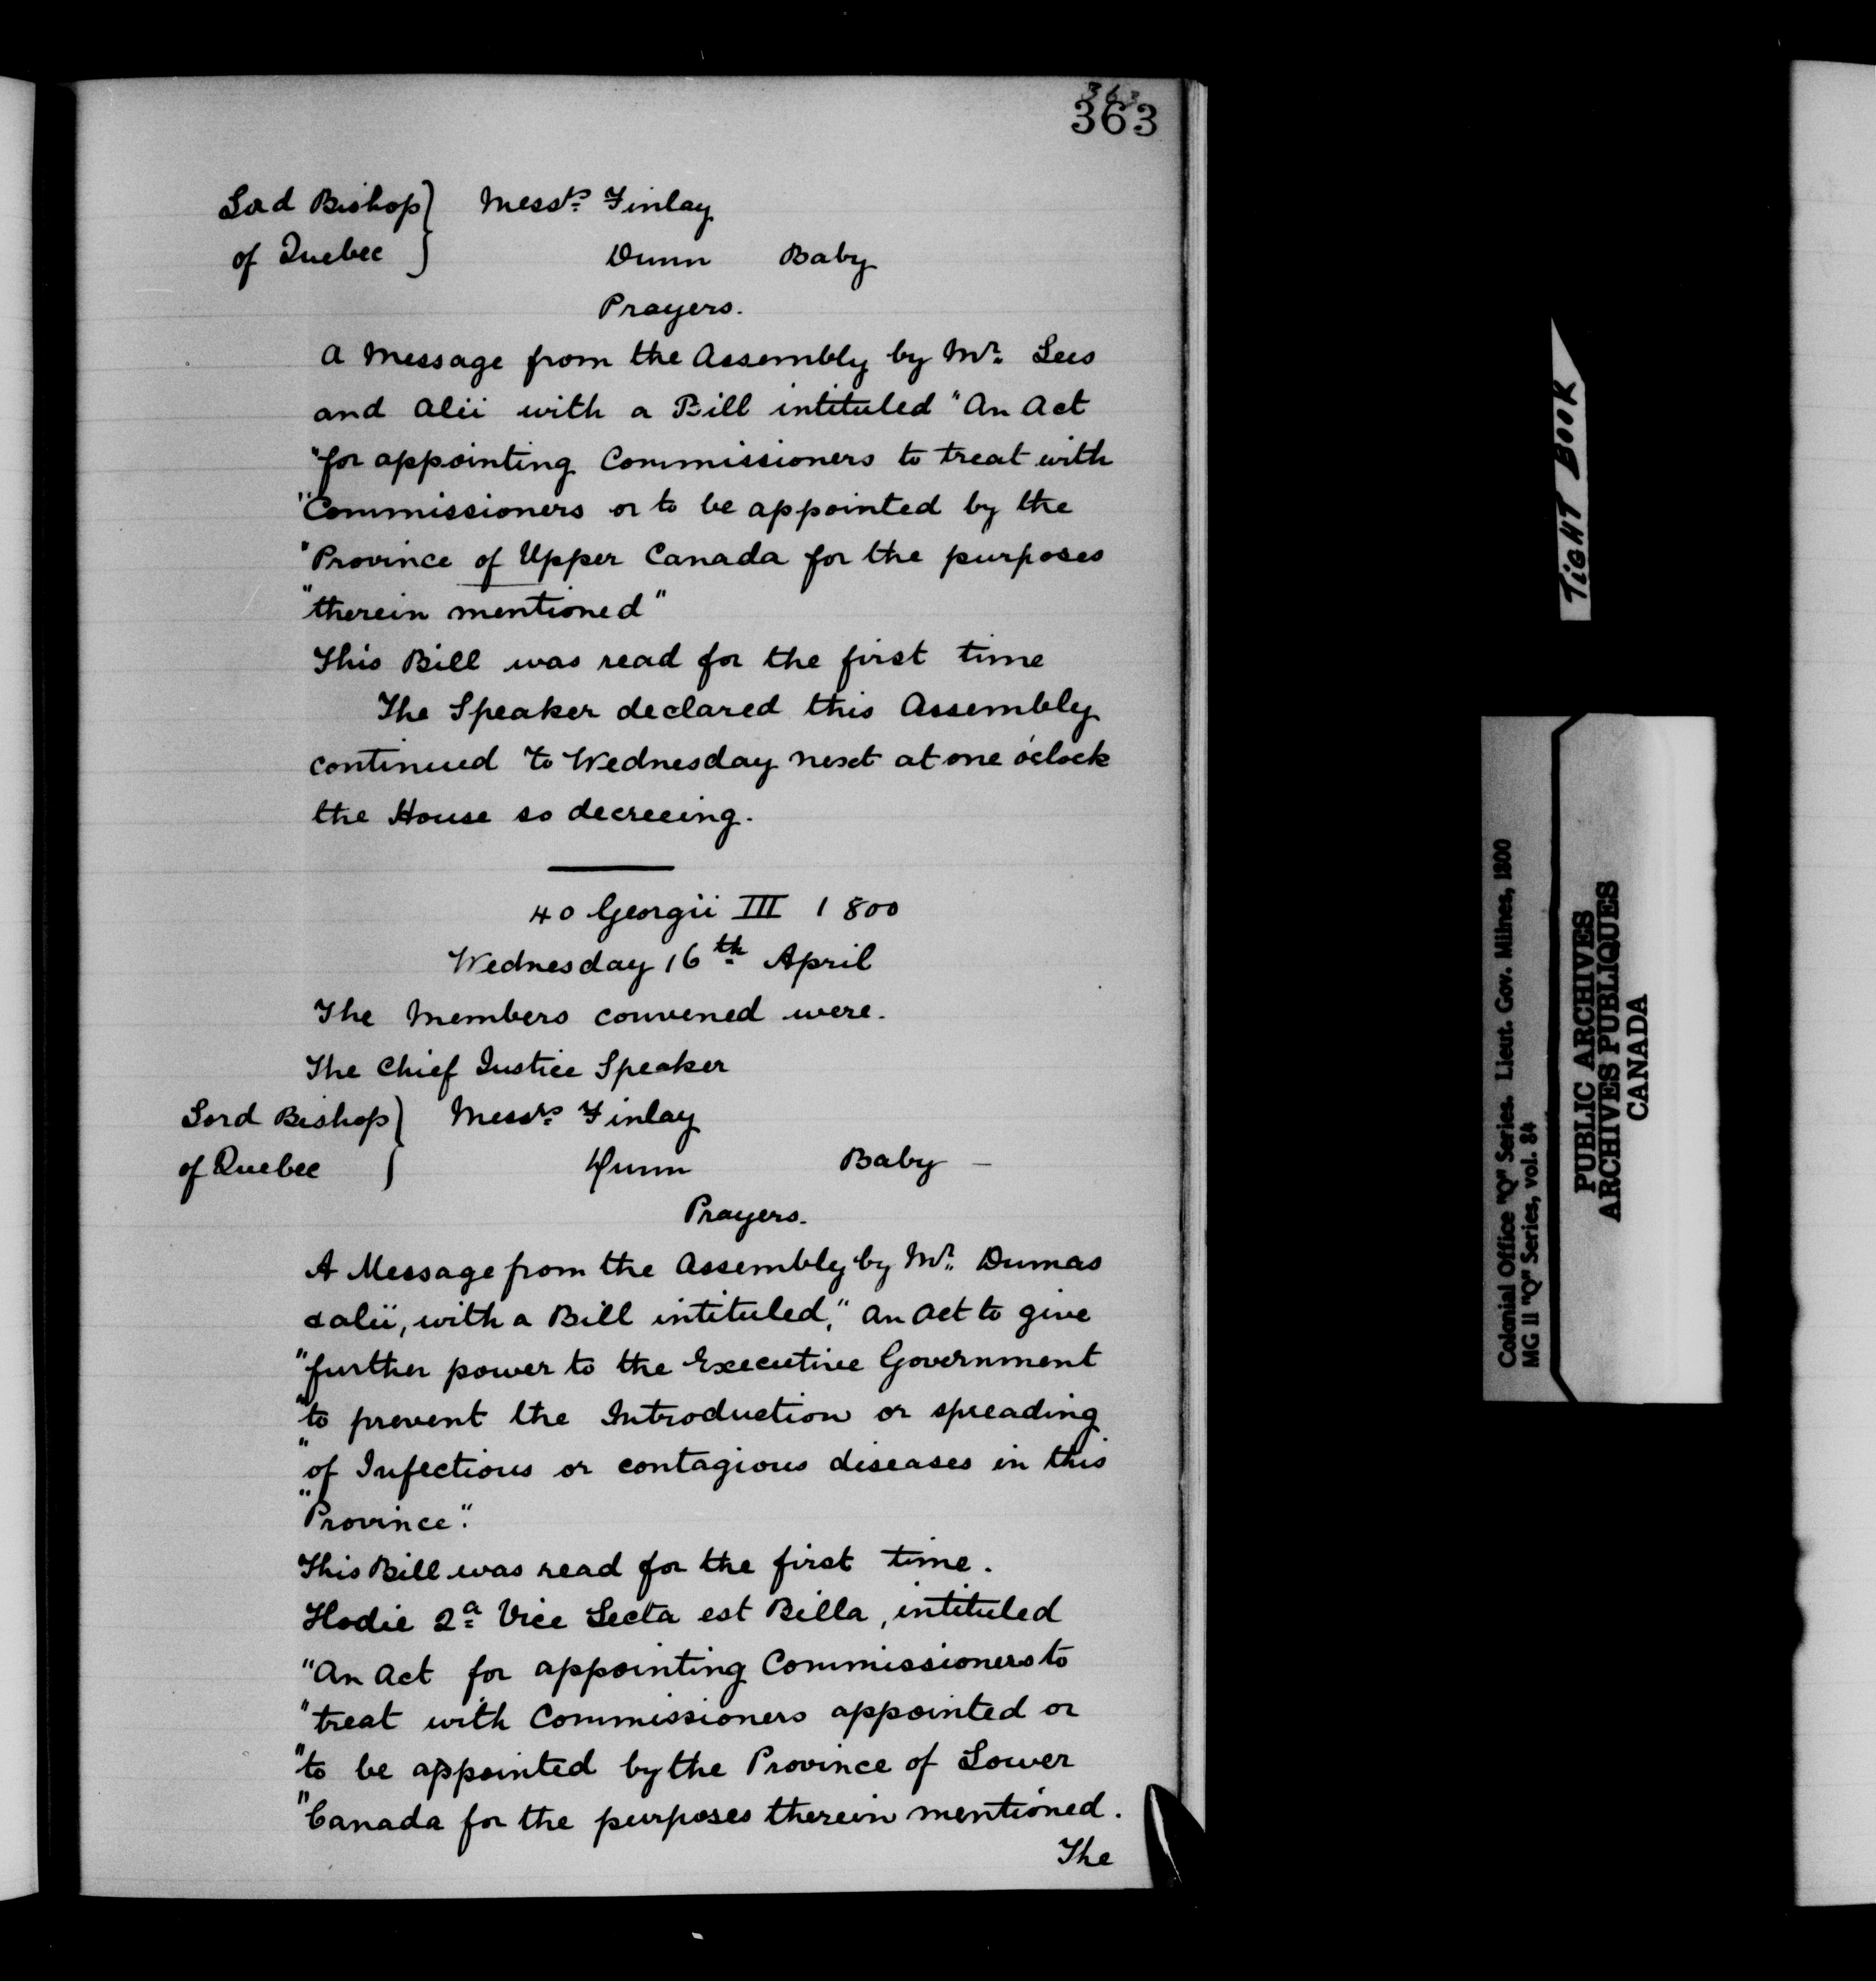 363
363
Lord Bishop } Messrs. Finlay
of Quebec } Dunn Baby
Prayers.
A Message from the Assembly by Mr. Lees
and alii with a Bill intituled "An Act
"for appointing Commissioners to treat with
"Commissioners or to be appointed by the
"Province of Upper Canada for the purposes
"therein mentioned"
This Bill was read for the first time
The Speaker declared this Assembly
continued to Wednesday next at one o'clock
the House so decreeing.
40 Georgii III 1800
Wednesday 16th April
The Members convened were.
The Chief Justice Speaker
Lord Bishop } Messrs. Finlay
of Quebec } Dunn Baby —
Prayers.
A Message from the Assembly by Mr. Dumas
& alii, with a Bill intituled, "An Act to give
"further power to the Executive Government
"to prevent the Introduction or spreading
"of Infectious or contagious diseases in this
"Province".
This Bill was read for the first time.
Hodie 2a Vice Lecta est Billa, intituled
"An Act for appointing Commissioners to
"treat with Commissioners appointed or
"to be appointed by the Province of Lower
"Canada for the purposes therein mentioned.
The
TIGHT BOOK
Colonial Office "Q" Series. Lieut. Gov. Milnes, 1800
MG 11 "Q" Series, vol. 84
PUBLIC ARCHIVES
ARCHIVES PUBLIQUES
CANADA